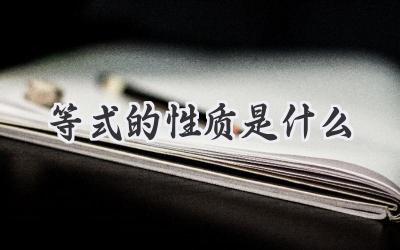 等式的性质是什么